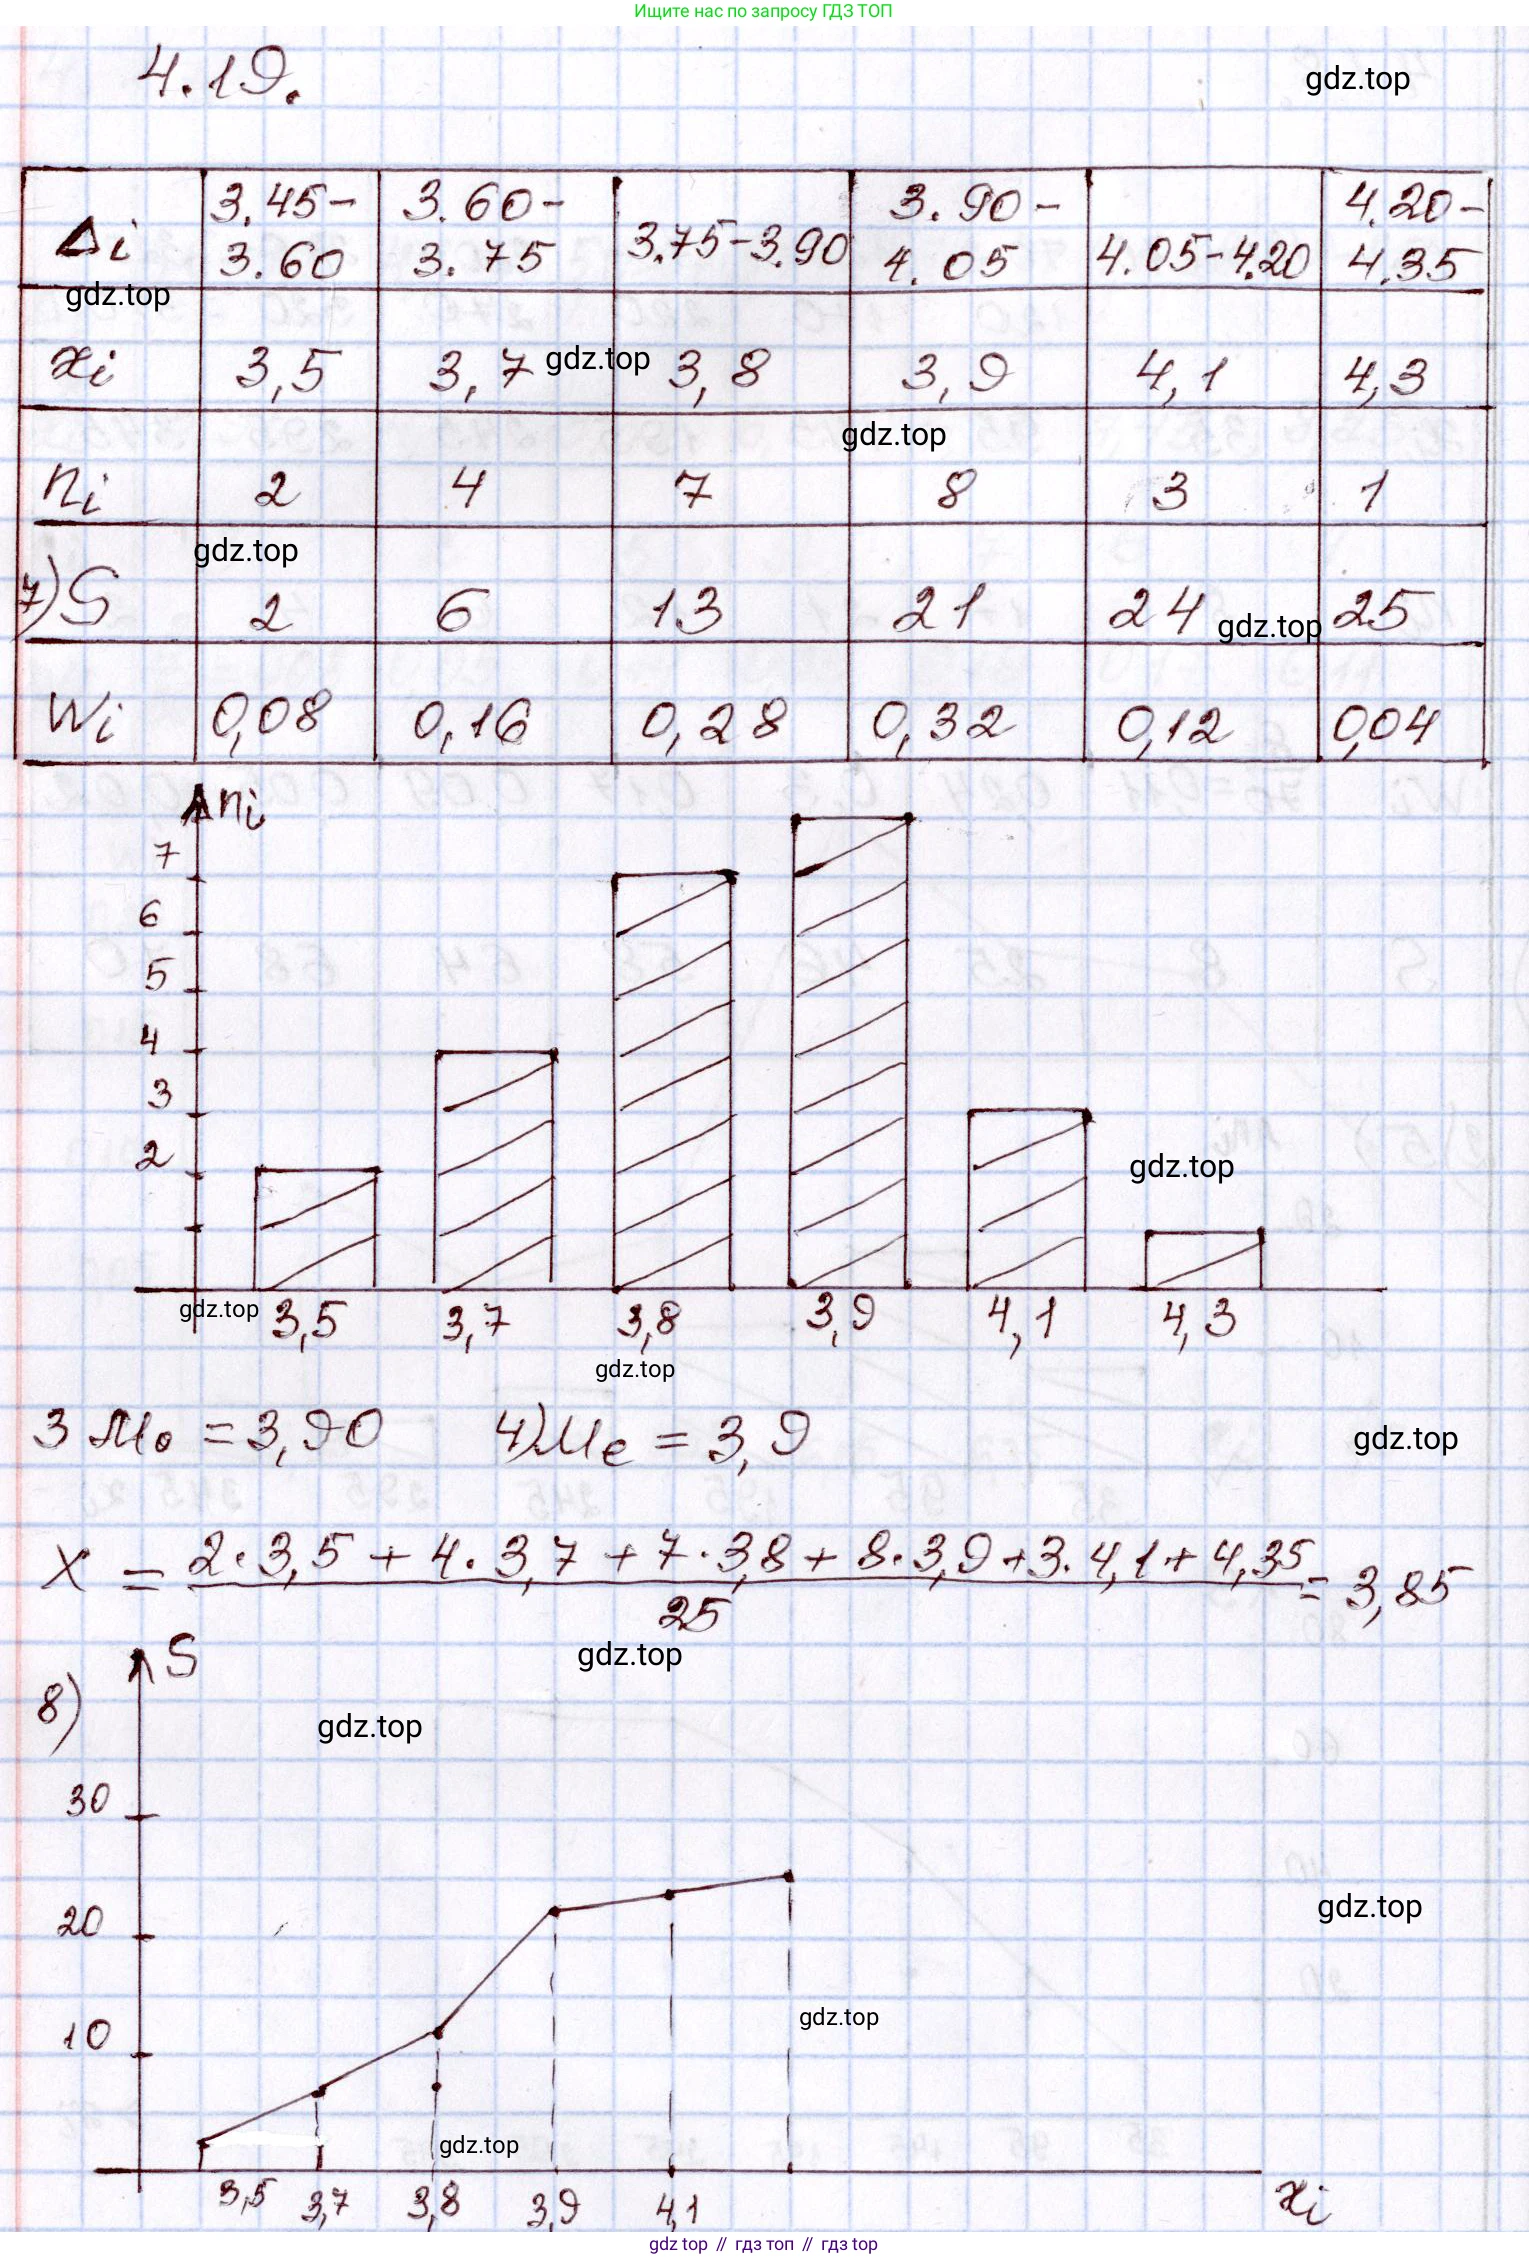 Ищите нас по запросу ГДЗ ТОП
4.19.
gdz.top
Δi 3.45-3.60 3.60-3.75 3.75-3.90 3.90-4.05 4.05-4.20 4.20-4.35
gdz.top
xi 3,5 3,7 gdz.top 3,8 3,9 4,1 4,3
gdz.top
ni 2 4 7 8 3 1
gdz.top
7) S 2 6 13 21 24 gdz.top 25
Wi 0,08 0,16 0,28 0,32 0,12 0,04
ni
7
6
5
4
3
2
gdz.top
gdz.top 3,5 3,7 3,8 3,9 4,1 4,3
gdz.top
3 Mo = 3,90 4) Me = 3,9 gdz.top
X = 2·3,5 + 4·3,7 + 7·3,8 + 8·3,9 + 3·4,1 + 4,35 = 3,85
25
gdz.top
8) S
gdz.top
30
20
gdz.top
10
gdz.top
gdz.top
3,5 3,7 3,8 3,9 4,1 xi
gdz top // гдз топ // gdz top